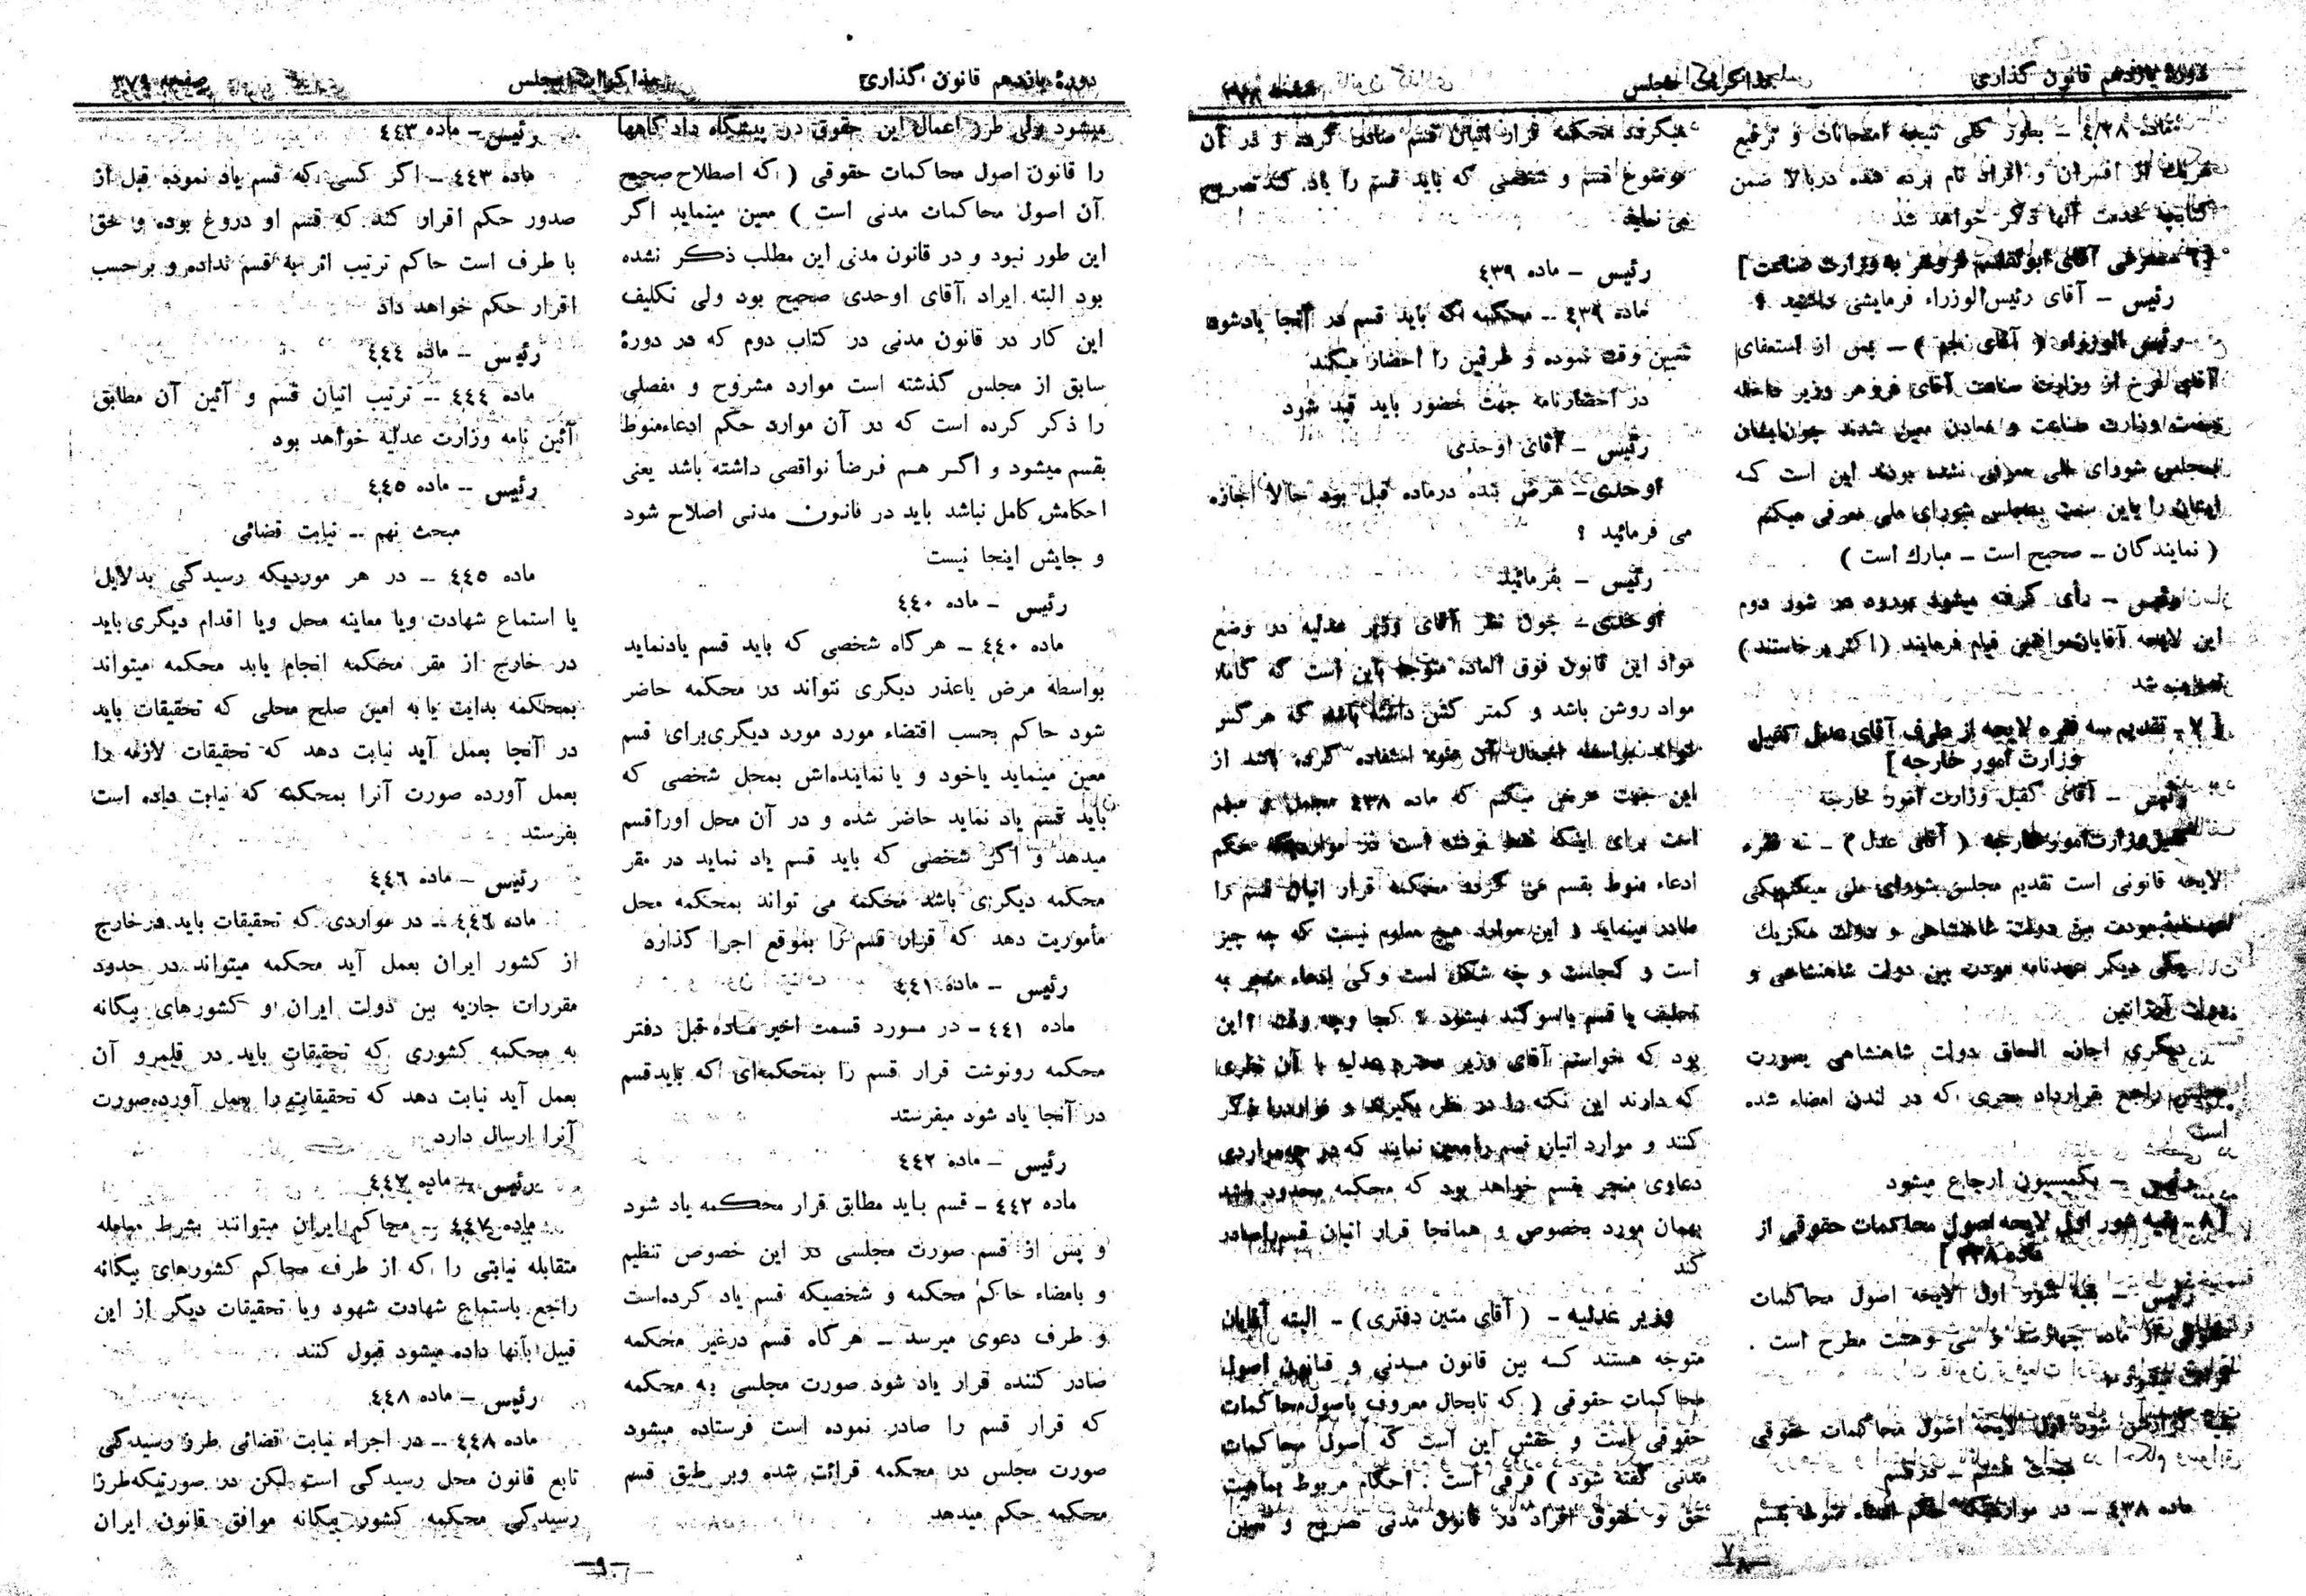 دورهٔ یازدهم قانون گذاری
مذاکرات مجلس
صفحه ۳۷۸
ماده ٤/۲۸ – بطور کلی نتیجه امتحانات و ترفیع
هریك از افسران و افراد نام برده شده دربالا ضمن
کتابچه خدمت آنها ذکر خواهد شد
[٦ معرفی آقای ابوالقاسم فروهر به وزارت صناعت]
رئیس – آقای رئیس‌الوزراء فرمایشی داشتید ؟
رئیس الوزراء ( آقای جم ) – پس از استعفای
آقای فرخ از وزارت صناعت آقای فروهر وزیر داخله
بسمت وزارت صناعت و معادن معین شدند چون‌ایشان
بمجلس شورای ملی معرفی نشده بودند این است که
ایشان را باین سمت بمجلس شورای ملی معرفی میکنم
( نمایندگان – صحیح است – مبارك است )
رئیس – رأی گرفته میشود بورود در شور دوم
این لایحه آقایان‌موافقین قیام فرمایند (اکثر برخاستند)
تصویب شد
[ ۷ - تقدیم سه فقره لایحه از طرف آقای عدل کفیل
وزارت امور خارجه]
رئیس – آقای کفیل وزارت امور خارجه
کفیل وزارت‌امورخارجه ( آقای عدل ) – سه فقره
لایحه قانونی است تقدیم مجلس شورای ملی میکنم‌یکی
عهدنامه مودت بین دولت شاهنشاهی و دولت مکزیك
یکی دیگر عهدنامه مودت بین دولت شاهنشاهی و
دولت آرژانتین
دیگری اجازه الحاق دولت شاهنشاهی بصورت
مجلس راجع بقرارداد بحری که در لندن امضاء شده
است
رئیس – بکمیسیون ارجاع میشود
[۸ - بقیه شور اول لایحه اصول محاکمات حقوقی از
ماده ٤۳۸]
رئیس – بقیه شور اول لایحه اصول محاکمات
حقوقی از ماده چهارصد و سی و هشت مطرح است .
قرائت میشود
بقیه گزارش شور اول لایحه اصول محاکمات حقوقی
مبحث هشتم – در قسم
ماده ٤۳۸ – در مواردیکه حکم ادعاء منوط بقسم
میگردد محکمه قرار اتیان قسم صادر کرده و در آن
موضوع قسم و شخصی که باید قسم را یاد کند تصریح
می نماید
رئیس – ماده ٤۳۹
ماده ٤۳۹ – محکمه که باید قسم در آنجا یادشود
تعیین وقت نموده و طرفین را احضار میکند
در احضارنامه جهت حضور باید قید شود
رئیس – آقای اوحدی
اوحدی– عرض بنده درماده قبل بود حالا اجازه
می فرمائید ؟
رئیس – بفرمائید
اوحدی– چون نظر آقای وزیر عدلیه در وضع
مواد این قانون فوق العاده متوجه باین است که کاملا
مواد روشن باشد و کمتر کشی داشته باشد که هرکس
نتواند بواسطه اجمال آن سوء استفاده کرده باشد از
این جهت عرض میکنم که ماده ٤۳۸ مجمل و مبهم
است برای اینکه فقط نوشته است در مواردیکه حکم
ادعاء منوط بقسم می گردد محکمه قرار اتیان قسم را
صادر مینماید و این موارد هیچ معلوم نیست که چه چیز
است و کجاست و چه شکل است وکی ادعاء منجر به
تحلیف یا قسم یاسوگند میشود ؟ کجا وچه وقت ؟ این
بود که خواستم آقای وزیر محترم عدلیه با آن نظری
که دارند این نکته را در نظر بگیرند و مواردرا ذکر
کنند و موارد اتیان قسم رامعین نمایند که در چه‌مواردی
دعاوی منجر بقسم خواهد بود که محکمه محدود باشد
بهمان مورد بخصوص و همانجا قرار اتیان قسم‌راصادر
کند
وزیر عدلیه – ( آقای متین دفتری) – البته آقایان
متوجه هستند که بین قانون مدنی و قانون اصول
محاکمات حقوقی ( که تابحال معروف باصول‌محاکمات
حقوقی است و حقش این است که اصول محاکمات
مدنی گفته شود ) فرقی است . احکام مربوط بماهیت
حق و حقوق افراد در قانون مدنی صریح و معین
۷
دورهٔ یازدهم قانون گذاری
مذاکرات مجلس
صفحه ۳۷۹
میشود ولی طرز اعمال این حقوق در پیشگاه دادگاهها
را قانون اصول محاکمات حقوقی ( که اصطلاح صحیح
آن اصول محاکمات مدنی است ) معین مینماید اگر
این طور نبود و در قانون مدنی این مطلب ذکر نشده
بود البته ایراد آقای اوحدی صحیح بود ولی تکلیف
این کار در قانون مدنی در کتاب دوم که در دورهٔ
سابق از مجلس گذشته است موارد مشروح و مفصلی
را ذکر کرده است که در آن موارد حکم ادعاءمنوط
بقسم میشود و اگر هم فرضاً نواقصی داشته باشد یعنی
احکامش کامل نباشد باید در قانون مدنی اصلاح شود
و جایش اینجا نیست
رئیس – ماده ٤٤۰
ماده ٤٤۰ – هرگاه شخصی که باید قسم یادنماید
بواسطه مرض یاعذر دیگری نتواند در محکمه حاضر
شود حاکم بحسب اقتضاء مورد مورد دیگری‌برای قسم
معین مینماید یاخود و یا نماینده‌اش بمحل شخصی که
باید قسم یاد نماید حاضر شده و در آن محل اوراقسم
میدهد و اگر شخصی که باید قسم یاد نماید در مقر
محکمه دیگری باشد محکمه می تواند بمحکمه محل
مأموریت دهد که قرار قسم را بموقع اجرا گذارد
رئیس – ماده ٤٤۱
ماده ٤٤۱ – در مورد قسمت اخیر ماده قبل دفتر
محکمه رونوشت قرار قسم را بمحکمه‌ای که بایدقسم
در آنجا یاد شود میفرستد
رئیس – ماده ٤٤۲
ماده ٤٤۲ – قسم باید مطابق قرار محکمه یاد شود
و پس از قسم صورت مجلسی در این خصوص تنظیم
و بامضاء حاکم محکمه و شخصیکه قسم یاد کرده‌است
و طرف دعوی میرسد – هرگاه قسم درغیر محکمه
صادر کننده قرار یاد شود صورت مجلسی به محکمه
که قرار قسم را صادر نموده است فرستاده میشود
صورت مجلس در محکمه قرائت شده وبر طبق قسم
محکمه حکم میدهد
رئیس – ماده ٤٤۳
ماده ٤٤۳ – اگر کسی که قسم یاد نموده قبل از
صدور حکم اقرار کند که قسم او دروغ بوده و حق
با طرف است حاکم ترتیب اثر به قسم نداده و برحسب
اقرار حکم خواهد داد
رئیس – ماده ٤٤٤
ماده ٤٤٤ – ترتیب اتیان قسم و آئین آن مطابق
آئین نامه وزارت عدلیه خواهد بود
رئیس – ماده ٤٤٥
مبحث نهم – نیابت قضائی
ماده ٤٤٥ – در هر موردیکه رسیدگی بدلایل
یا استماع شهادت ویا معاینه محل ویا اقدام دیگری باید
در خارج از مقر محکمه انجام یابد محکمه میتواند
بمحکمه بدایت یا به امین صلح محلی که تحقیقات باید
در آنجا بعمل آید نیابت دهد که تحقیقات لازمه را
بعمل آورده صورت آنرا بمحکمه که نیابت داده است
بفرستد
رئیس – ماده ٤٤٦
ماده ٤٤٦ – در مواردی که تحقیقات باید درخارج
از کشور ایران بعمل آید محکمه میتواند در حدود
مقررات جاریه بین دولت ایران و کشورهای بیگانه
به محکمه کشوری که تحقیقات باید در قلمرو آن
بعمل آید نیابت دهد که تحقیقات را بعمل آورده‌صورت
آنرا ارسال دارد
رئیس – ماده ٤٤۷
ماده ٤٤۷ – محاکم ایران میتوانند بشرط معامله
متقابله نیابتی را که از طرف محاکم کشورهای بیگانه
راجع باستماع شهادت شهود ویا تحقیقات دیگر از این
قبیل بآنها داده میشود قبول کنند
رئیس – ماده ٤٤۸
ماده ٤٤۸ – در اجراء نیابت قضائی طرز رسیدگی
تابع قانون محل رسیدگی است لیکن در صورتیکه‌طرز
رسیدگی محکمه کشور بیگانه موافق قانون ایران
–۹–